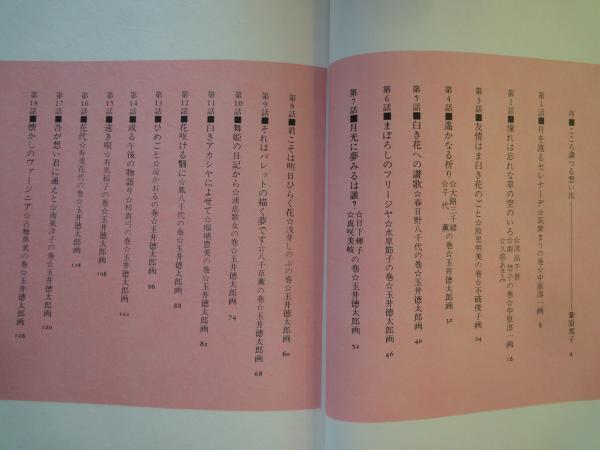 序■こころ満つる想い出――葦原邦子 4
第1話■月を渡るセレナーデ☆筑紫まりの巻☆中原淳一画 8
第2話■憧れは忘れな草の空のいろ☆淡島千景☆南悠子の巻☆中原淳一画 16
☆久慈あさみ
第3話■友情はま白き花のごと☆故里明美の巻☆不破俊子画 24
第4話■遙かなる祈り☆大路三千緒☆千代薫の巻☆玉井徳太郎画 32
第5話■白き花への讃歌☆春日野八千代の巻☆玉井徳太郎画 40
第6話■まぼろしのフリージヤ☆水原節子の巻☆玉井徳太郎画 46
第7話■月光に夢みるは誰?☆日下輝子☆真咲美岐の巻☆玉井徳太郎画 52
第8話■君こそは明日ひらく花☆浅芽しのぶの巻☆玉井徳太郎画 60
第9話■それはパレットの描く夢です☆八千草薫の巻☆玉井徳太郎画 68
第10話■舞姫の日記から☆浦島歌女の巻☆玉井徳太郎画 74
第11話■白きアカシヤによせて☆瑠璃豊美の巻☆玉井徳太郎画 82
第12話■花咲ける翳に☆鳳八千代の巻☆玉井徳太郎画 88
第13話■ひめごと☆淀かおるの巻☆玉井徳太郎画 96
第14話■或る午後の物語り☆梓真弓の巻☆玉井徳太郎画 102
第15話■遠き唄☆有馬桜子の巻☆玉井徳太郎画 108
第16話■花代☆寿美花代の巻☆玉井徳太郎画 114
第17話■吾が想い君に通えと☆南風洋子の巻☆玉井徳太郎画 120
第18話■懐かしのヴァージニア☆古雅典美の巻☆玉井徳太郎画 128